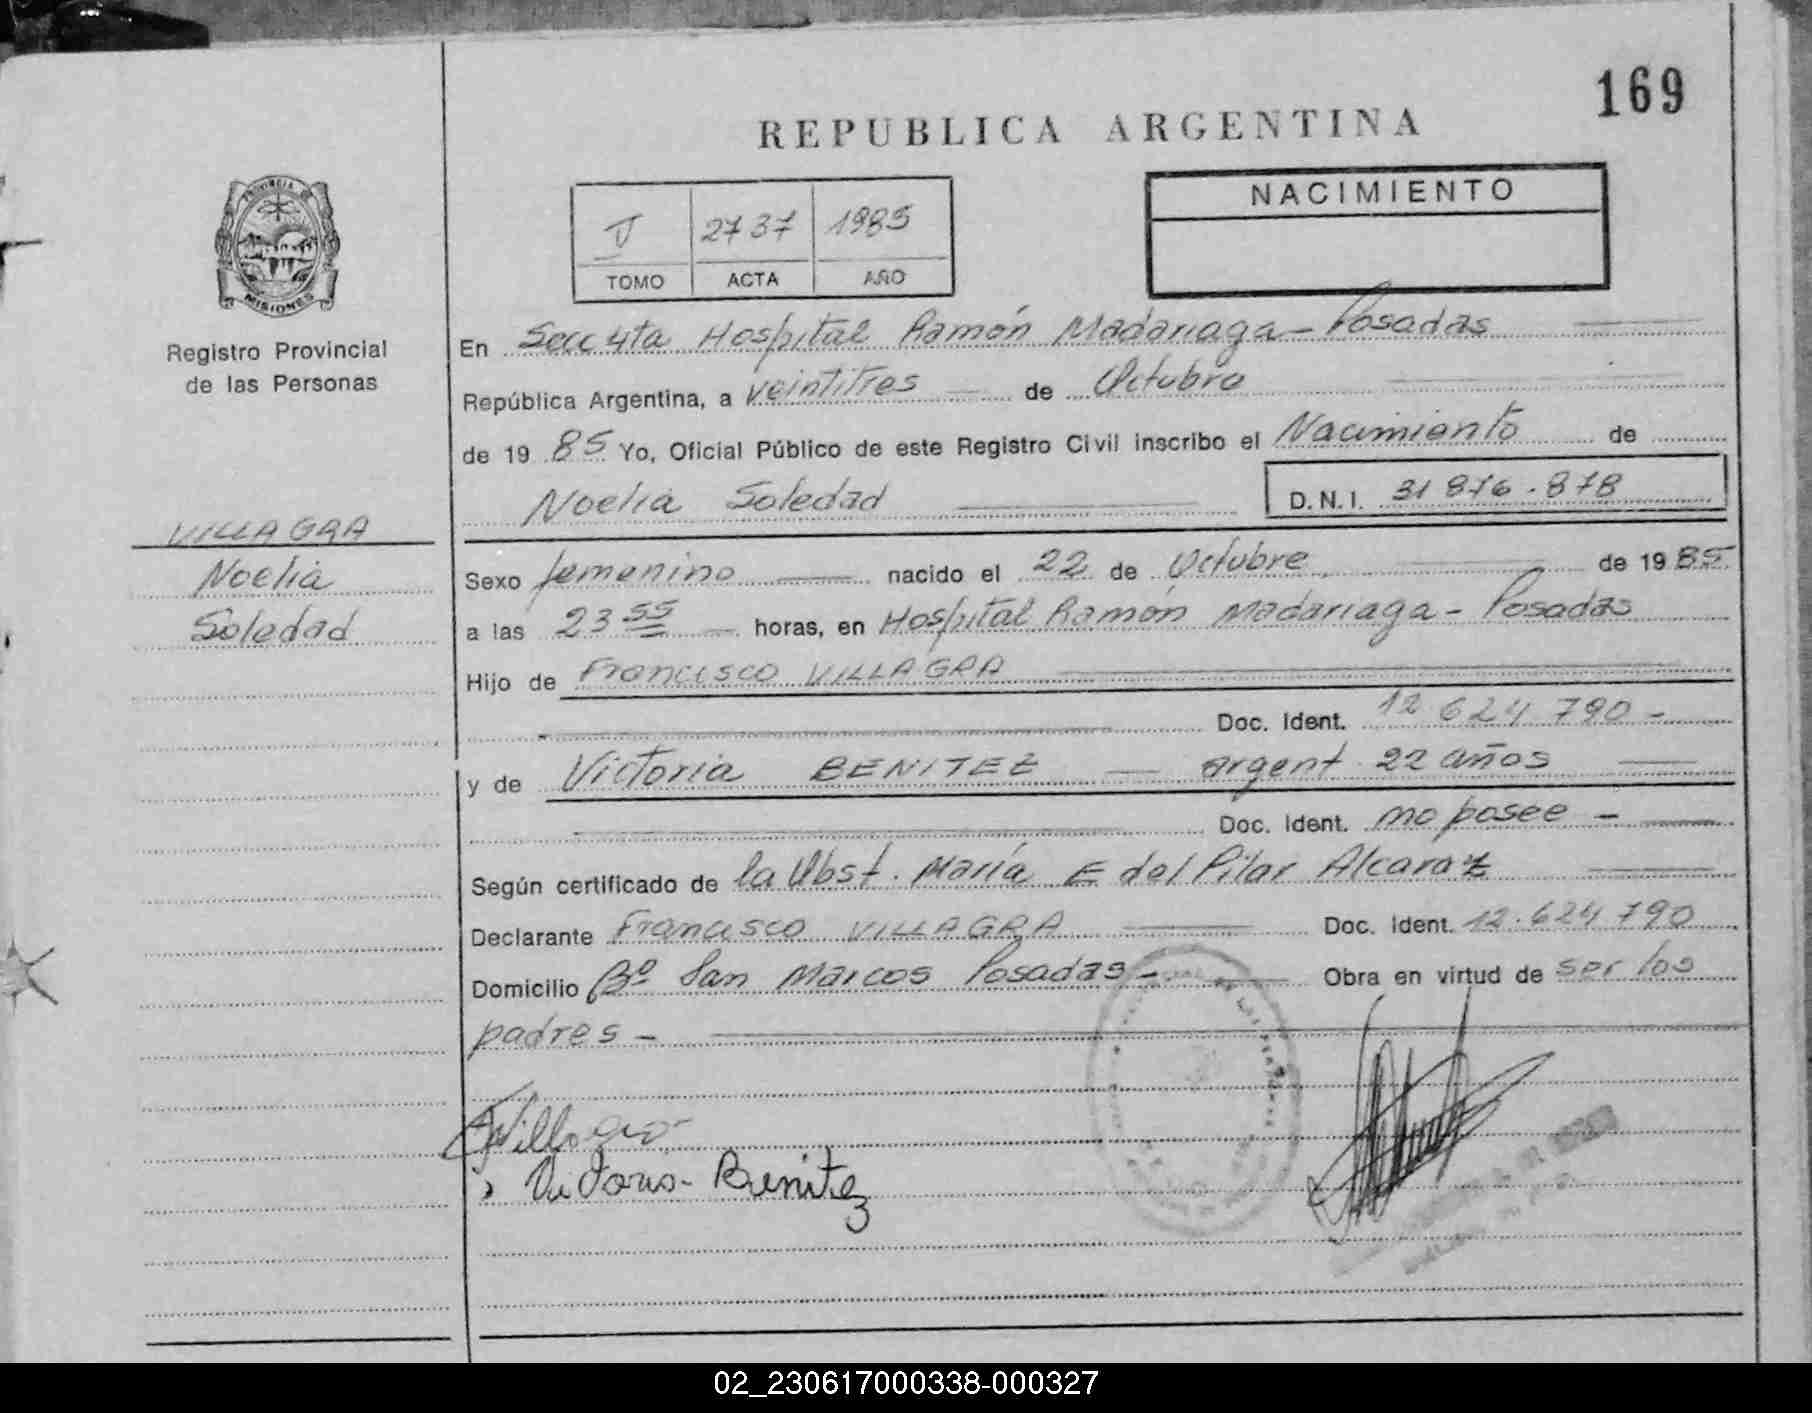 169
REPUBLICA ARGENTINA
NACIMIENTO
V 2737 1985
TOMO ACTA AÑO
PROVINCIA DE
MISIONES
Registro Provincial
de las Personas
VILLAGRA
Noelia
Soledad
En Secc 4ta Hospital Ramón Madariaga - Posadas
República Argentina, a veintitres de Octubre
de 19 85 Yo, Oficial Público de este Registro Civil inscribo el Nacimiento de
Noelia Soledad D.N.I. 31 876.878
Sexo femenino nacido el 22 de Octubre de 19 85
a las 23 55 horas, en Hospital Ramón Madariaga - Posadas
Hijo de Francisco VILLAGRA
Doc. Ident. 12 624 790 -
y de Victoria BENITEZ argent. 22 años
Doc. Ident. no posee -
Según certificado de la Obst. María E del Pilar Alcaraz
Declarante Francisco VILLAGRA Doc. Ident. 12.624 790
Domicilio Bº San Marcos Posadas - Obra en virtud de ser los
padres -
Villagra
Victoria Benitez
02_230617000338-000327